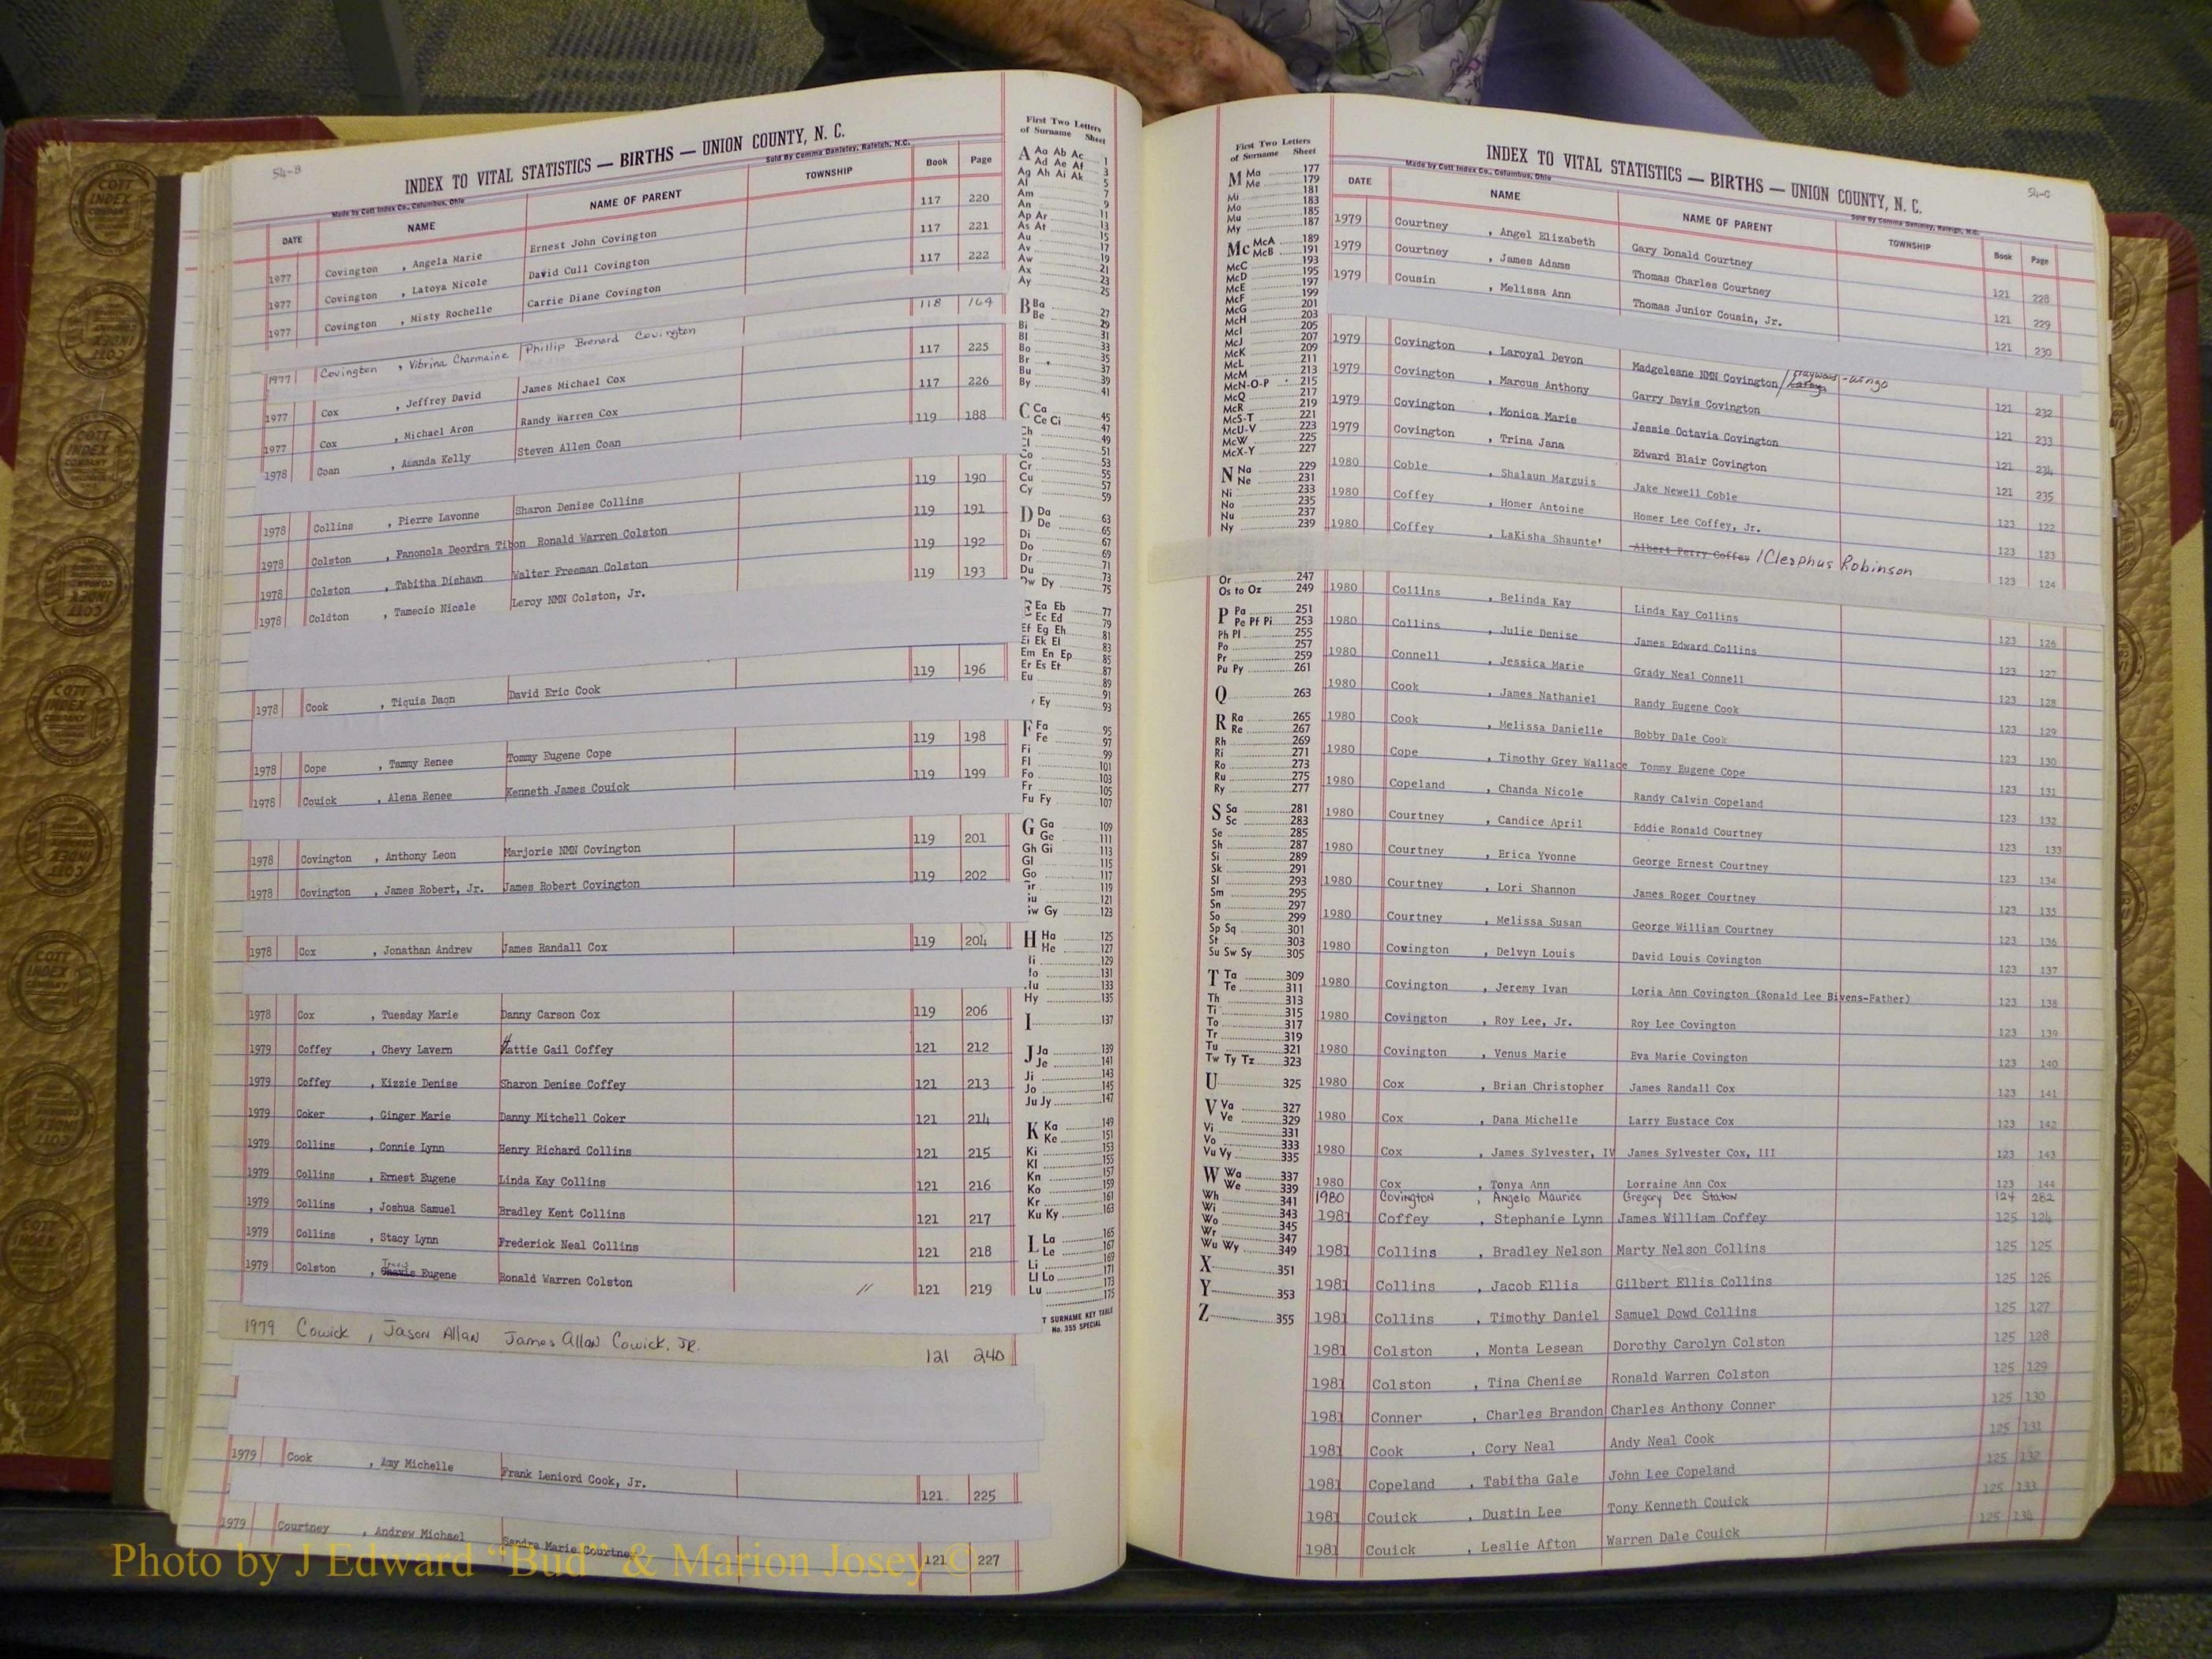 54-B
INDEX TO VITAL STATISTICS — BIRTHS — UNION COUNTY, N. C.
Made by Cott Index Co., Columbus, Ohio Sold By Comma Danieley, Raleigh, N.C.
DATE NAME NAME OF PARENT TOWNSHIP Book Page
1977 Covington , Angela Marie Ernest John Covington 117 220
1977 Covington , Latoya Nicole David Cull Covington 117 221
1977 Covington , Misty Rochelle Carrie Diane Covington 117 222
1977 Covington , Vibrina Charmaine Phillip Brenard Covington 118 164
1977 Cox , Jeffrey David James Michael Cox 117 225
1977 Cox , Michael Aron Randy Warren Cox 117 226
1978 Coan , Amanda Kelly Steven Allen Coan 119 188
1978 Collins , Pierre Lavonne Sharon Denise Collins 119 190
1978 Colston , Fanonola Deordra Tibon Ronald Warren Colston 119 191
1978 Colston , Tabitha Dishawn Walter Freeman Colston 119 192
1978 Coldton , Tamecio Nicole Leroy NMN Colston, Jr. 119 193
1978 Cook , Tiquia Dagn David Eric Cook 119 196
1978 Cope , Tammy Renee Tommy Eugene Cope 119 198
1978 Couick , Alena Renee Kenneth James Couick 119 199
1978 Covington , Anthony Leon Marjorie NMN Covington 119 201
1978 Covington , James Robert, Jr. James Robert Covington 119 202
1978 Cox , Jonathan Andrew James Randall Cox 119 204
1978 Cox , Tuesday Marie Danny Carson Cox 119 206
1979 Coffey , Chevy Lavern Hattie Gail Coffey 121 212
1979 Coffey , Kizzie Denise Sharon Denise Coffey 121 213
1979 Coker , Ginger Marie Danny Mitchell Coker 121 214
1979 Collins , Connie Lynn Henry Richard Collins 121 215
1979 Collins , Ernest Eugene Linda Kay Collins 121 216
1979 Collins , Joshua Samuel Bradley Kent Collins 121 217
1979 Collins , Stacy Lynn Frederick Neal Collins 121 218
1979 Colston , Travis Eugene Ronald Warren Colston // 121 219
1979 Cowick , Jason Allan James Allan Cowick, JR. 121 240
1979 Cook , Amy Michelle Frank Leniord Cook, Jr. 121 225
1979 Courtney , Andrew Michael Sandra Marie Courtney 121 227
First Two Letters
of Surname Sheet
A Aa Ab Ac 1
Ad Ae Af 3
Ag Ah Ai Ak 5
Al 7
Am 9
An 11
Ap Ar 13
As At 15
Au 17
Av 19
Aw 21
Ax 23
Ay 25
B Ba 27
Be 29
Bi 31
Bl 33
Bo 35
Br 37
Bu 39
By 41
C Ca 45
Ce Ci 47
49
51
53
Cr 55
Cu 57
Cy 59
D Da 63
De 65
Di 67
Do 69
Dr 71
Du 73
Dw Dy 75
E Ea Eb 77
Ec Ed 79
Ef Eg Eh 81
Ei Ek El 83
Em En Ep 85
Er Es Et 87
Eu 89
91
Ey 93
F Fa 95
Fe 97
Fi 99
Fl 101
Fo 103
Fr 105
Fu Fy 107
G Ga 109
Ge 111
Gh Gi 113
Gl 115
Go 117
119
121
Gy 123
H Ha 125
He 127
129
131
133
Hy 135
I 137
J Ja 139
Je 141
Ji 143
Jo 145
Ju Jy 147
K Ka 149
Ke 151
Ki 153
Kl 155
Kn 157
Ko 159
Kr 161
Ku Ky 163
L La 165
Le 167
Li 169
Ll Lo 171
Lu 173
175
T SURNAME KEY TABLE
No. 355 SPECIAL
54-C
INDEX TO VITAL STATISTICS — BIRTHS — UNION COUNTY, N. C.
Made by Cott Index Co., Columbus, Ohio Sold By Comma Danieley, Raleigh, N.C.
First Two Letters
of Surname Sheet
M Ma 177
Me 179
Mi 181
Mo 183
Mu 185
My 187
Mc McA 189
McB 191
McC 193
McD 195
McE 197
McF 199
McG 201
McH 203
McI 205
McJ 207
McK 209
McL 211
McM 213
McN-O-P 215
McQ 217
McR 219
McS-T 221
McU-V 223
McW 225
McX-Y 227
N Na 229
Ne 231
Ni 233
No 235
Nu 237
Ny 239
Or 247
Os to Oz 249
P Pa 251
Pe Pf Pi 253
Ph Pl 255
Po 257
Pr 259
Pu Py 261
Q 263
R Ra 265
Re 267
Rh 269
Ri 271
Ro 273
Ru 275
Ry 277
S Sa 281
Sc 283
Se 285
Sh 287
Si 289
Sk 291
Sl 293
Sm 295
Sn 297
So 299
Sp Sq 301
St 303
Su Sw Sy 305
T Ta 309
Te 311
Th 313
Ti 315
To 317
Tr 319
Tu 321
Tw Ty Tz 323
U 325
V Va 327
Ve 329
Vi 331
Vo 333
Vu Vy 335
W Wa 337
We 339
Wh 341
Wi 343
Wo 345
Wr 347
Wu Wy 349
X 351
Y 353
Z 355
DATE NAME NAME OF PARENT TOWNSHIP Book Page
1979 Courtney , Angel Elizabeth Gary Donald Courtney 121 228
1979 Courtney , James Adams Thomas Charles Courtney 121 229
1979 Cousin , Melissa Ann Thomas Junior Cousin, Jr. 121 230
1979 Covington , Laroyal Devon Madgeleane NMN Covington / -Wingo 121 232
1979 Covington , Marcus Anthony Garry Davis Covington 121 233
1979 Covington , Monica Marie Jessie Octavia Covington 121 234
1979 Covington , Trina Jana Edward Blair Covington 121 235
1980 Coble , Shalaun Marguis Jake Newell Coble 123 122
1980 Coffey , Homer Antoine Homer Lee Coffey, Jr. 123 123
1980 Coffey , LaKisha Shaunte' Albert Perry Coffey /Cleophus Robinson 123 124
1980 Collins , Belinda Kay Linda Kay Collins 123 126
1980 Collins , Julie Denise James Edward Collins 123 127
1980 Connell , Jessica Marie Grady Neal Connell 123 128
1980 Cook , James Nathaniel Randy Eugene Cook 123 129
1980 Cook , Melissa Danielle Bobby Dale Cook 123 130
1980 Cope , Timothy Grey Wallace Tommy Eugene Cope 123 131
1980 Copeland , Chanda Nicole Randy Calvin Copeland 123 132
1980 Courtney , Candice April Eddie Ronald Courtney 123 133
1980 Courtney , Erica Yvonne George Ernest Courtney 123 134
1980 Courtney , Lori Shannon James Roger Courtney 123 135
1980 Courtney , Melissa Susan George William Courtney 123 136
1980 Covington , Delvyn Louis David Louis Covington 123 137
1980 Covington , Jeremy Ivan Loria Ann Covington (Ronald Lee Bivens-Father) 123 138
1980 Covington , Roy Lee, Jr. Roy Lee Covington 123 139
1980 Covington , Venus Marie Eva Marie Covington 123 140
1980 Cox , Brian Christopher James Randall Cox 123 141
1980 Cox , Dana Michelle Larry Eustace Cox 123 142
1980 Cox , James Sylvester, IV James Sylvester Cox, III 123 143
1980 Cox , Tonya Ann Lorraine Ann Cox 123 144
1980 Covington , Angelo Maurice Gregory Dee Staton 124 282
1981 Coffey , Stephanie Lynn James William Coffey 125 124
1981 Collins , Bradley Nelson Marty Nelson Collins 125 125
1981 Collins , Jacob Ellis Gilbert Ellis Collins 125 126
1981 Collins , Timothy Daniel Samuel Dowd Collins 125 127
1981 Colston , Monta Lesean Dorothy Carolyn Colston 125 128
1981 Colston , Tina Chenise Ronald Warren Colston 125 129
1981 Conner , Charles Brandon Charles Anthony Conner 125 130
1981 Cook , Cory Neal Andy Neal Cook 125 131
1981 Copeland , Tabitha Gale John Lee Copeland 125 132
1981 Couick , Dustin Lee Tony Kenneth Couick 125 133
1981 Couick , Leslie Afton Warren Dale Couick 125 134
COTT INDEX COMPANY
Photo by J Edward "Bud" & Marion Josey ©